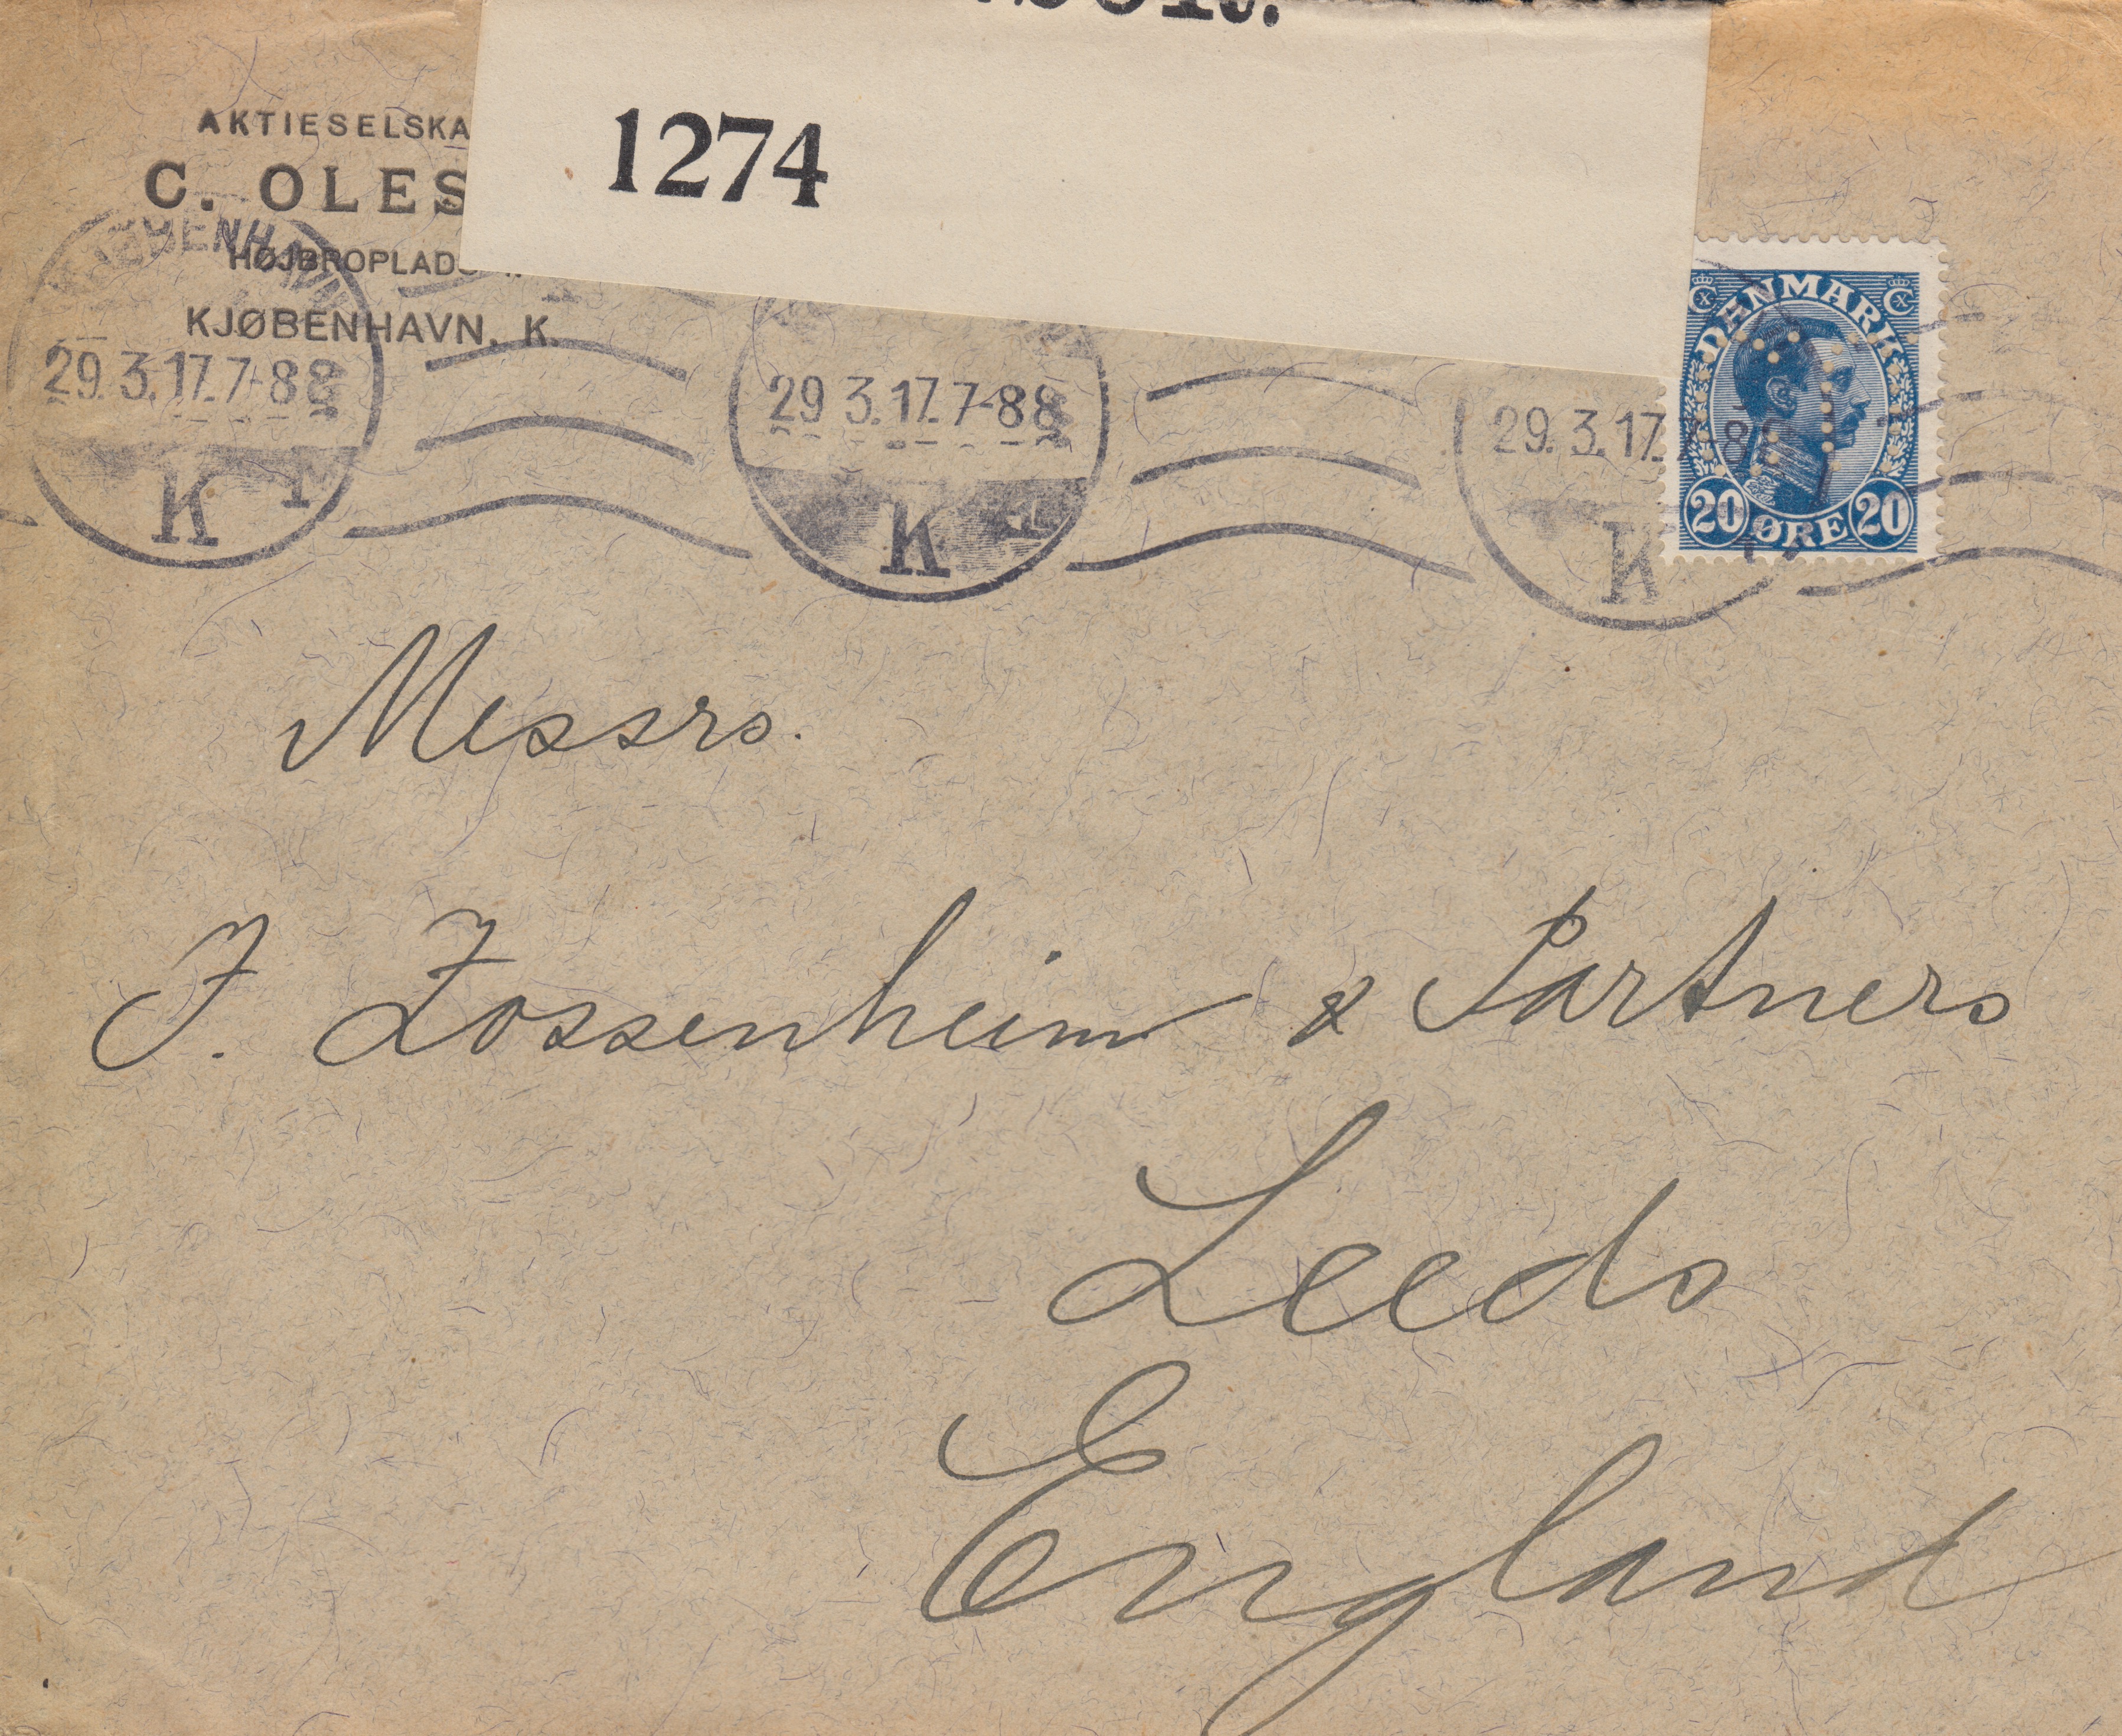 1274
AKTIESELSKA
C. OLES
HØJBROPLADS
KJØBENHAVN, K.
KJØBENHAVN
29.3.17. 7-8
K
29 3.17. 7-8
K
29. 3.17. 7-8
K
DANMARK
20 ØRE 20
Messrs.
J. Zossenheim & Partners
Leeds
England